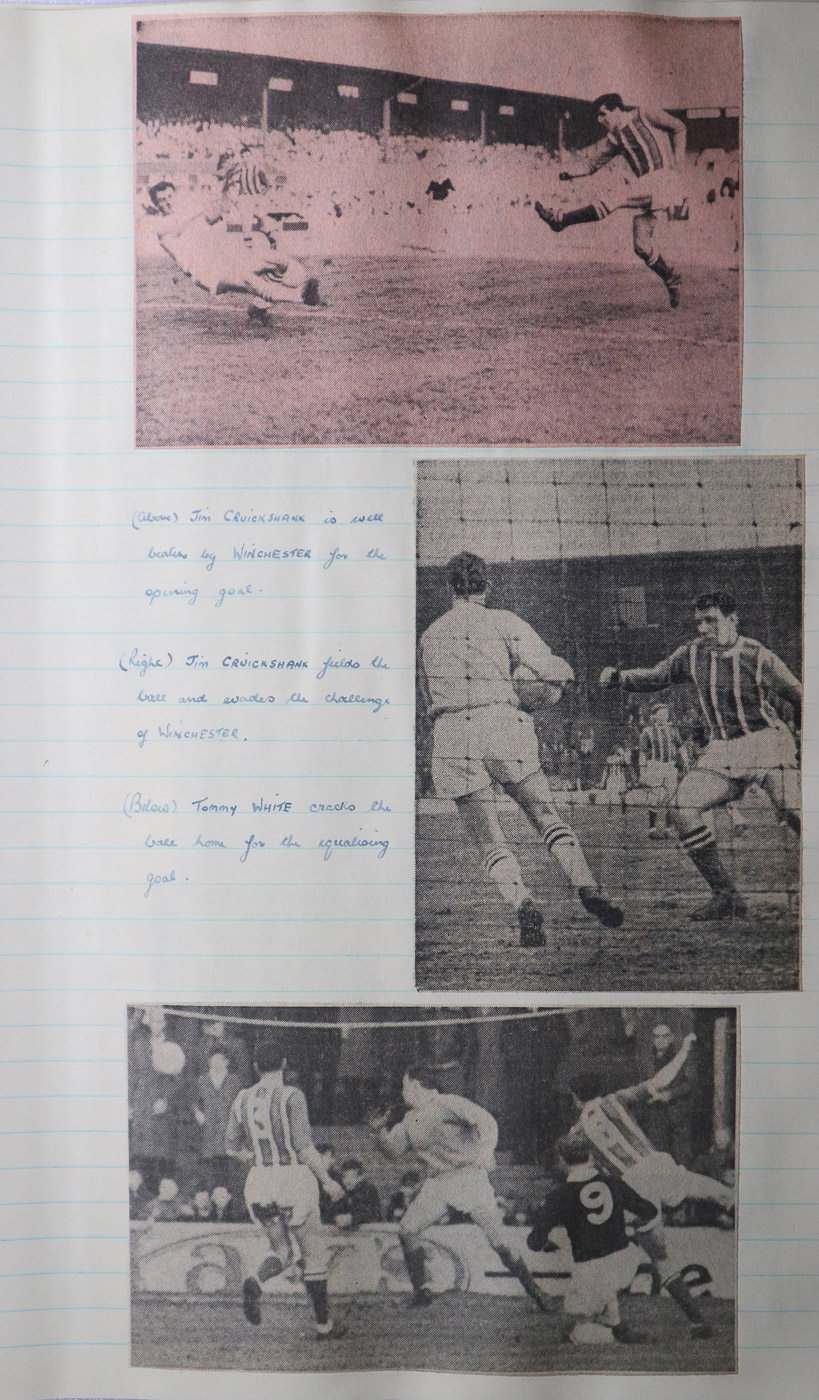 (Above) Jim CRUICKSHANK is well
beaten by WINCHESTER for the
opening goal.
(Right) Jim CRUICKSHANK fields the
ball and evades the challenge
of WINCHESTER.
(Below) Tommy WHITE cracks the
ball home for the equalising
goal.
9